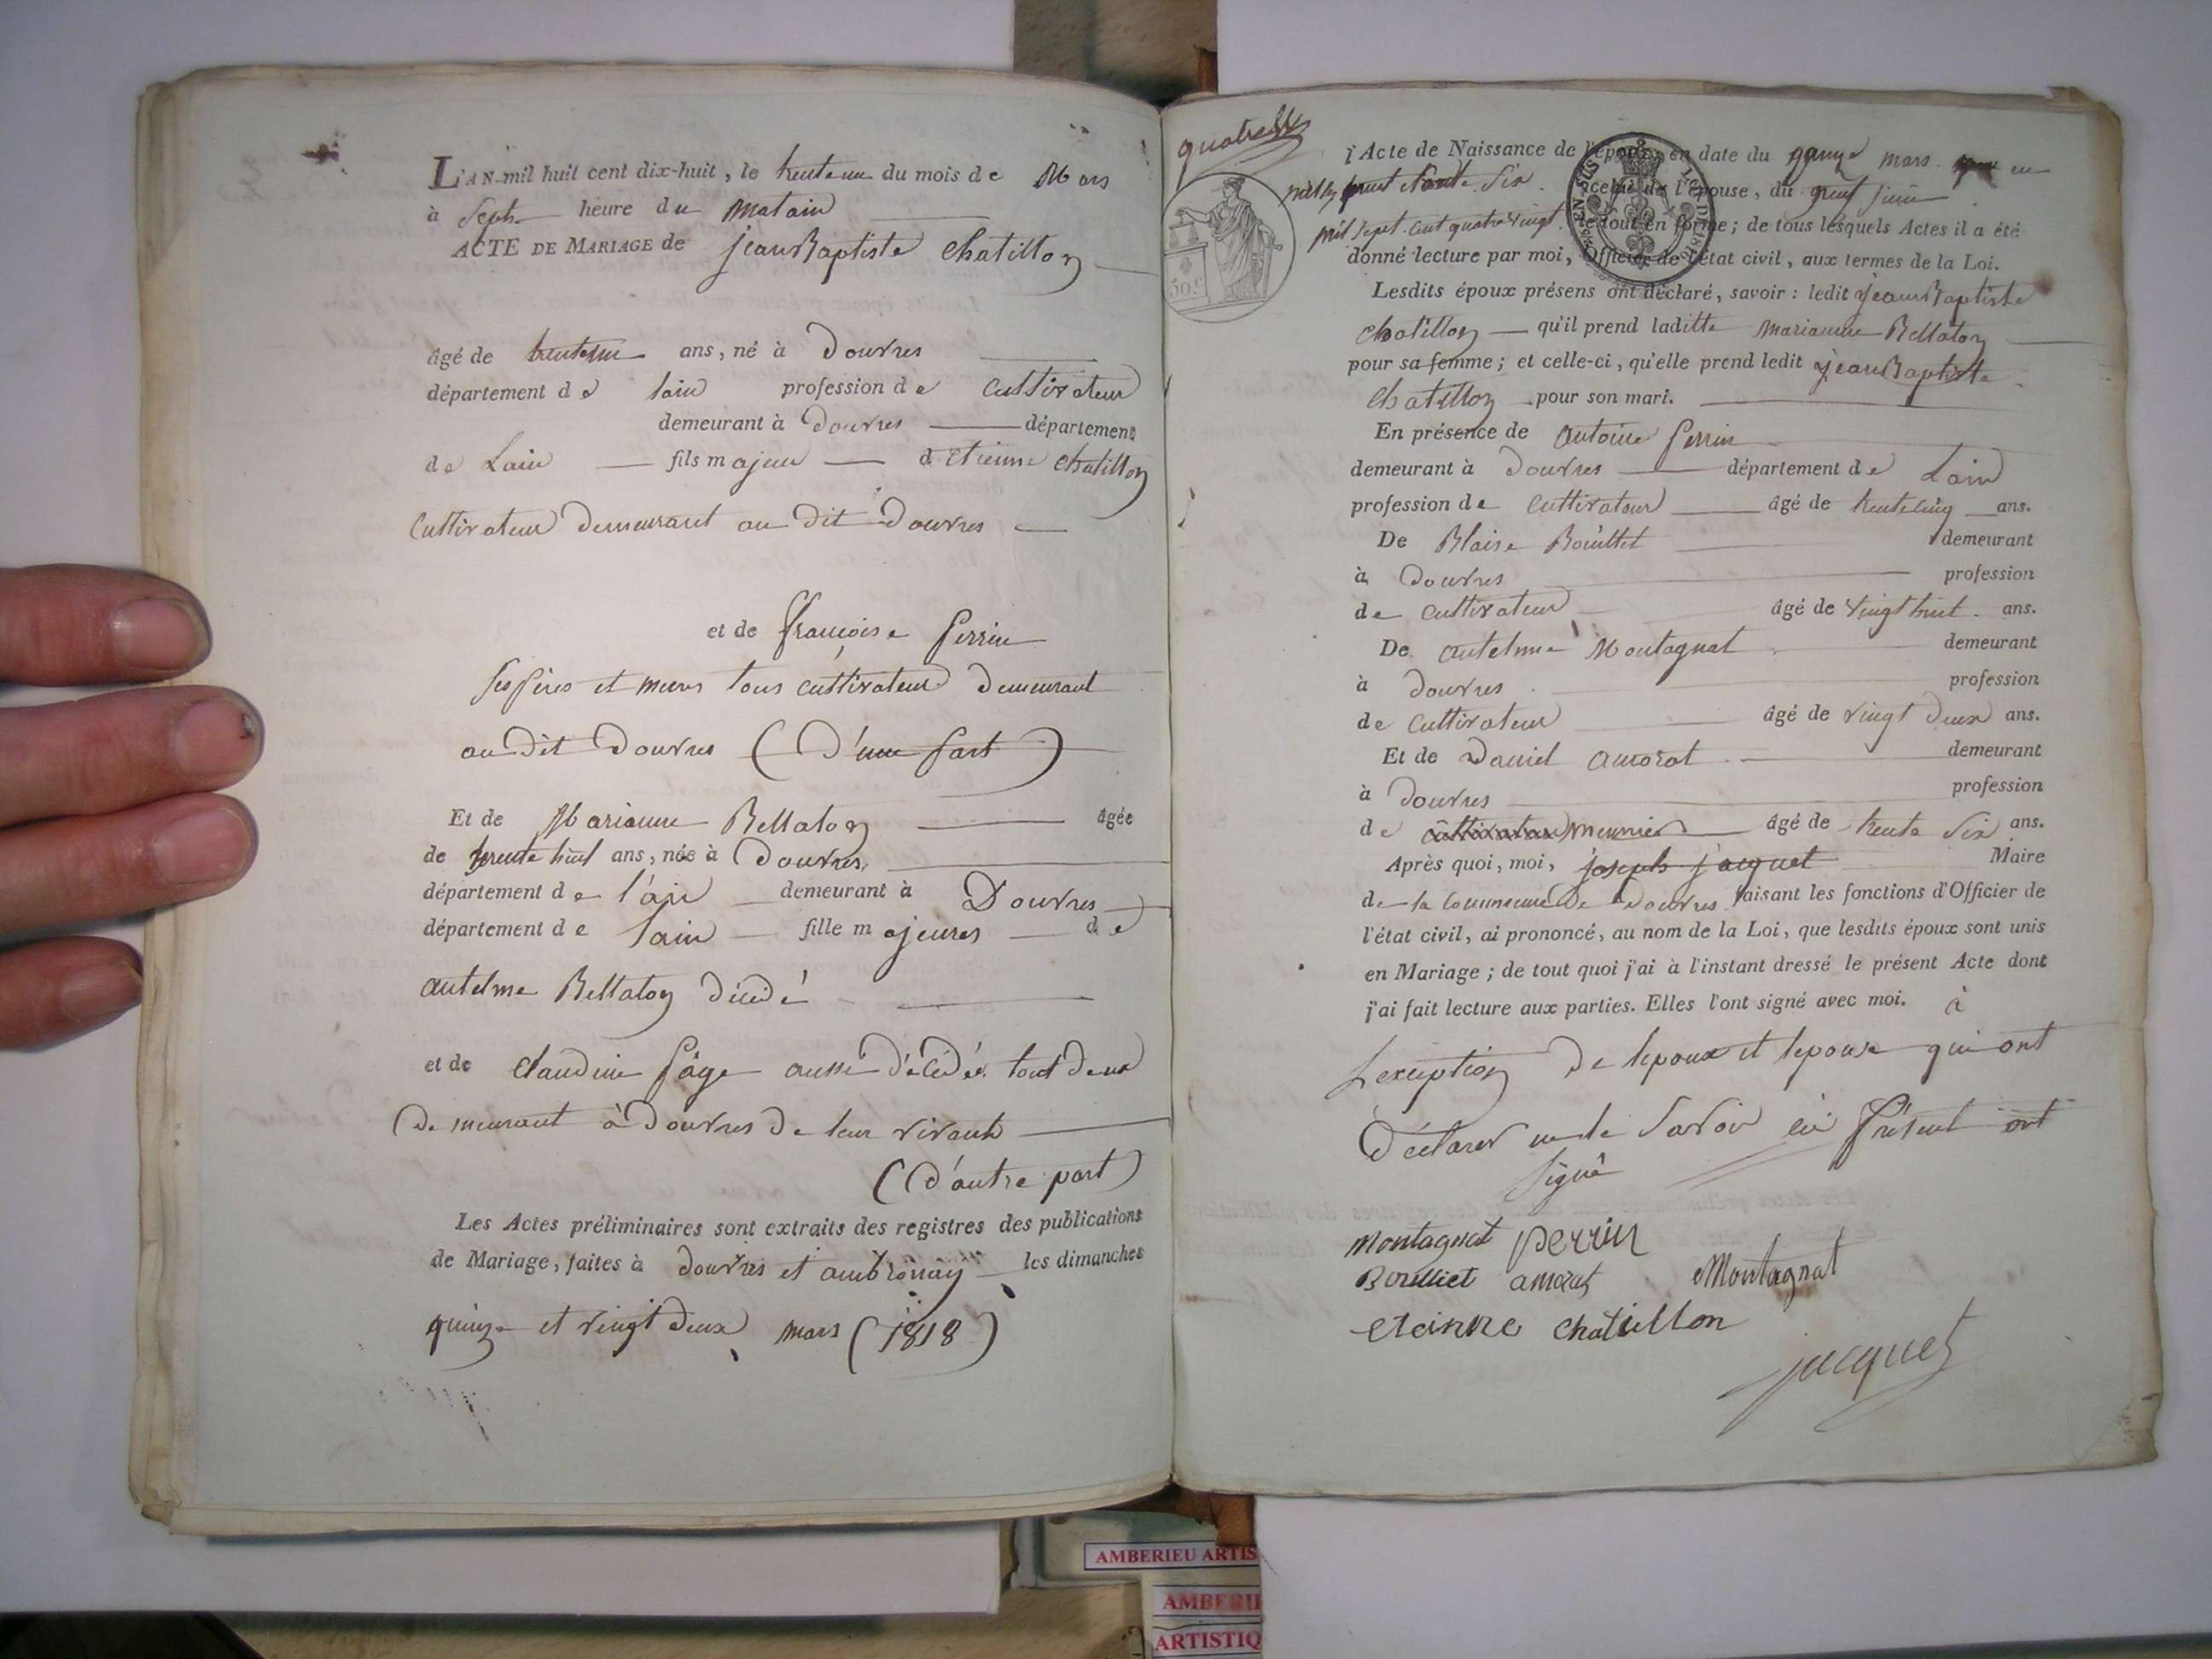 L'AN mil huit cent dix-huit, le trente un du mois de Mars
à Sept heure du Matain
ACTE DE MARIAGE de jean Baptiste Chatillon
âgé de ans, né à Douvres
département de lain profession de Cultivateur
demeurant à Douvres département
de Lain fils majeur d etienne Chatillon
Cultivateur Demeurant au dit Douvres
et de françoise perrin
ses pères et meres tous cultivateur Demeurant
au dit Douvres (D'une part)
Et de Marianne Bellaton âgée
de trente huit ans, née à Douvres
département de l'ain demeurant à Douvres
département de lain fille majeures de
antelme Bellaton décidé
et de Claudine pâge aussi décidée tout deux
Demeurant à Douvres De leur vivants
(D'autre part)
Les Actes préliminaires sont extraits des registres des publications
de Mariage, faites à Douvres et ambronay les dimanches
quinze et vingt deux mars (1818)
l'Acte de Naissance de l'époux en date du mars en
mil Six celui de l'épouse, du juin
mil Sept cent quatre vingt le tout en forme; de tous lesquels Actes il a été
donné lecture par moi, Officier de l'état civil, aux termes de la Loi.
Lesdits époux présens ont déclaré, savoir: ledit jean Baptiste
Chatillon qu'il prend laditte Marianne Bellaton
pour sa femme; et celle-ci, qu'elle prend ledit jean Baptiste
Chatillon pour son mari.
En présence de antoine perrin
demeurant à Douvres département de Lain
profession de Cultivateur âgé de trente cinq ans.
De Blaise Bouillet demeurant
à Douvres profession
de Cultivateur âgé de vingt huit ans.
De antelme Montagnat demeurant
à Douvres profession
de Cultivateur âgé de vingt Deux ans.
Et de Daniel amorat demeurant
à Douvres profession
de cultivateur meunier âgé de trente Six ans.
Après quoi, moi, joseph jacquet Maire
de la Commune De Douvres faisant les fonctions d'Officier de
l'état civil, ai prononcé, au nom de la Loi, que lesdits époux sont unis
en Mariage; de tout quoi j'ai à l'instant dressé le présent Acte dont
j'ai fait lecture aux parties. Elles l'ont signé avec moi. à
Lexception De lepoux et lepouse qui ont
Déclarer ne le Savoir Présent ont
Signé
montagnat perrin
Bouilliet amorat Montagnat
eteinne chatillon
jacquet
50.c
EN SUS
AMBERIEU ARTIS
AMBERI
ARTISTIQ